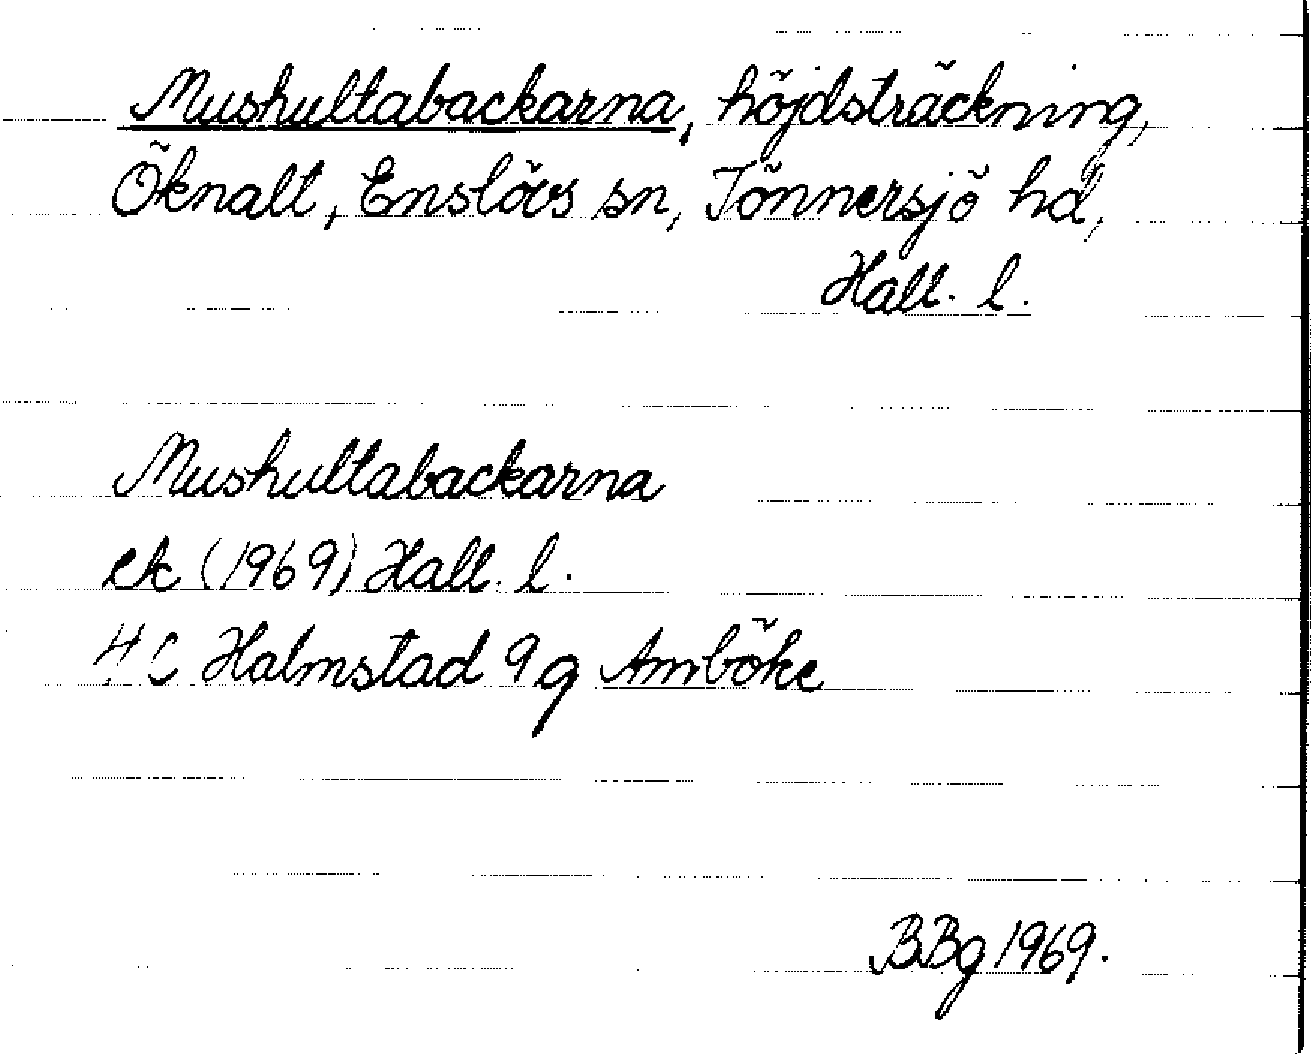 Mushultabackarna, höjdsträckning,
Öknalt, Enslövs sn, Tönnersjö hd,
Hall. l.
Mushultabackarna
ek (1969) Hall. l.
4 C Halmstad 9 g Amböke
BBg 1969.